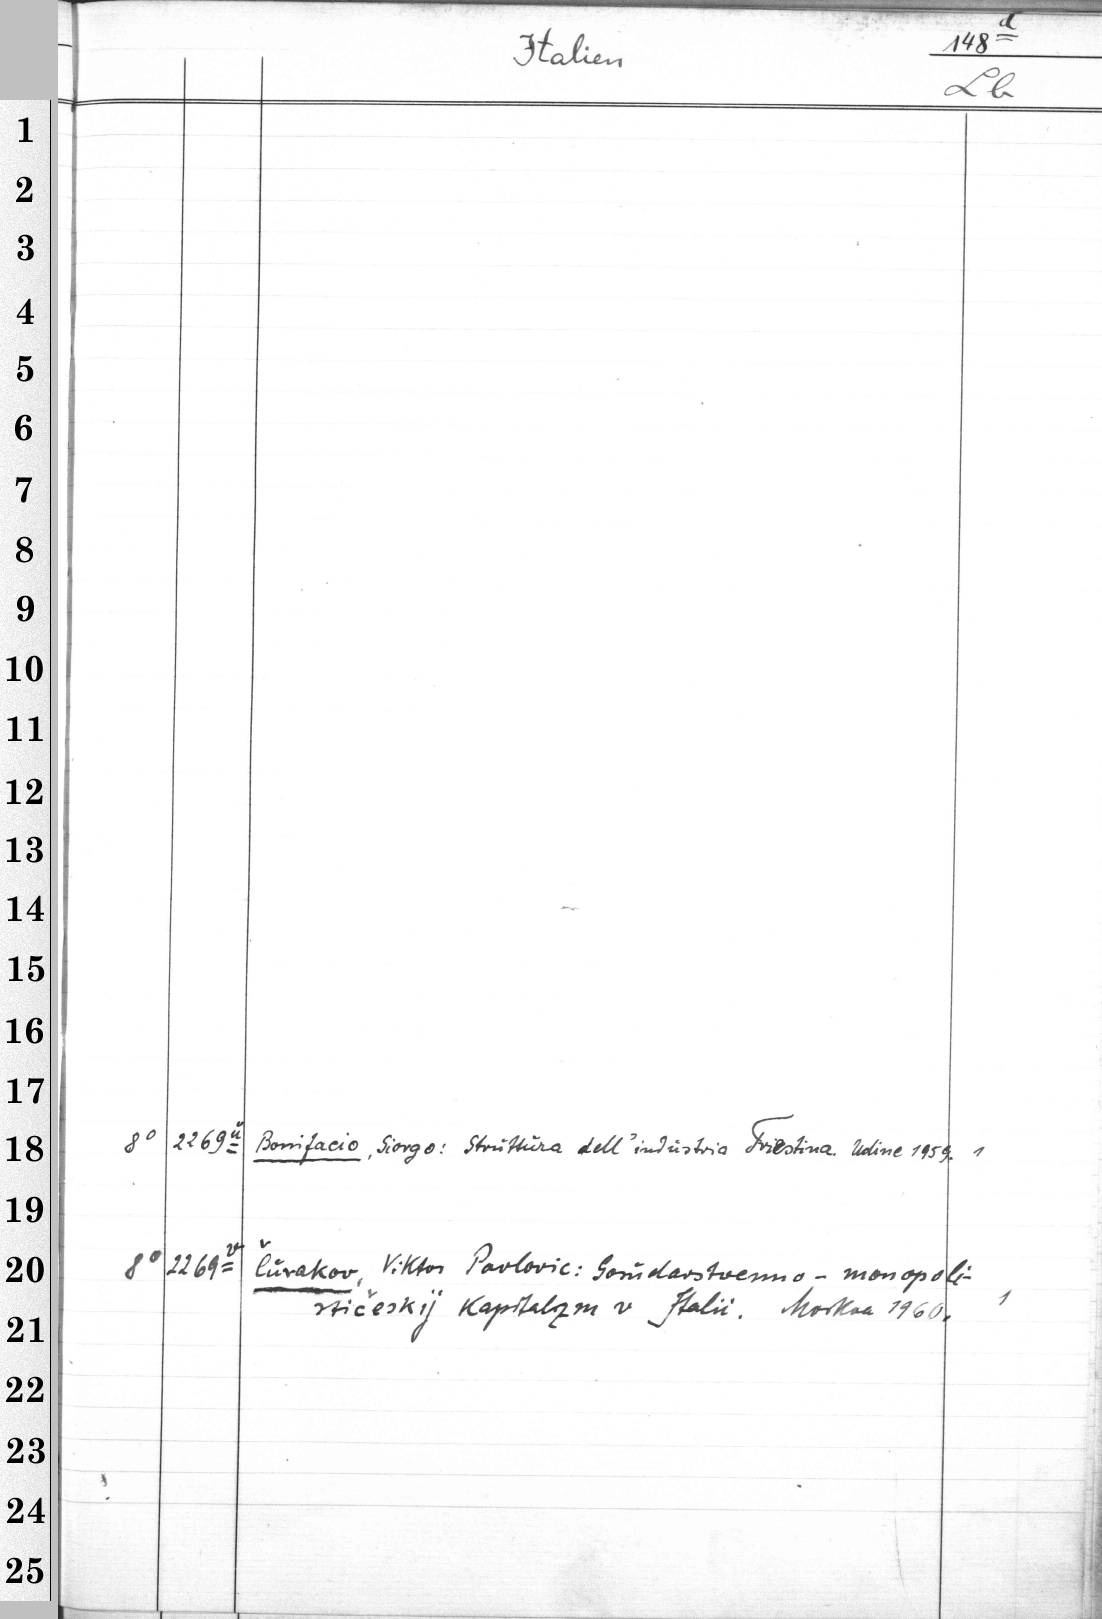 Italien
148 d
Lb
1
2
3
4
5
6
7
8
9
10
11
12
13
14
15
16
17
18
8° 2269 u Bonifacio, Giorgo: Struttura dell'industria Triestina. Udine 1959. 1
19
20
8° 2269 v Čurakov, Viktor Pavlovic: Gosudarstvenno - monopoli-
stičeskij Kapitalizm v Italii. Moskva 1960. 1
21
22
23
24
25